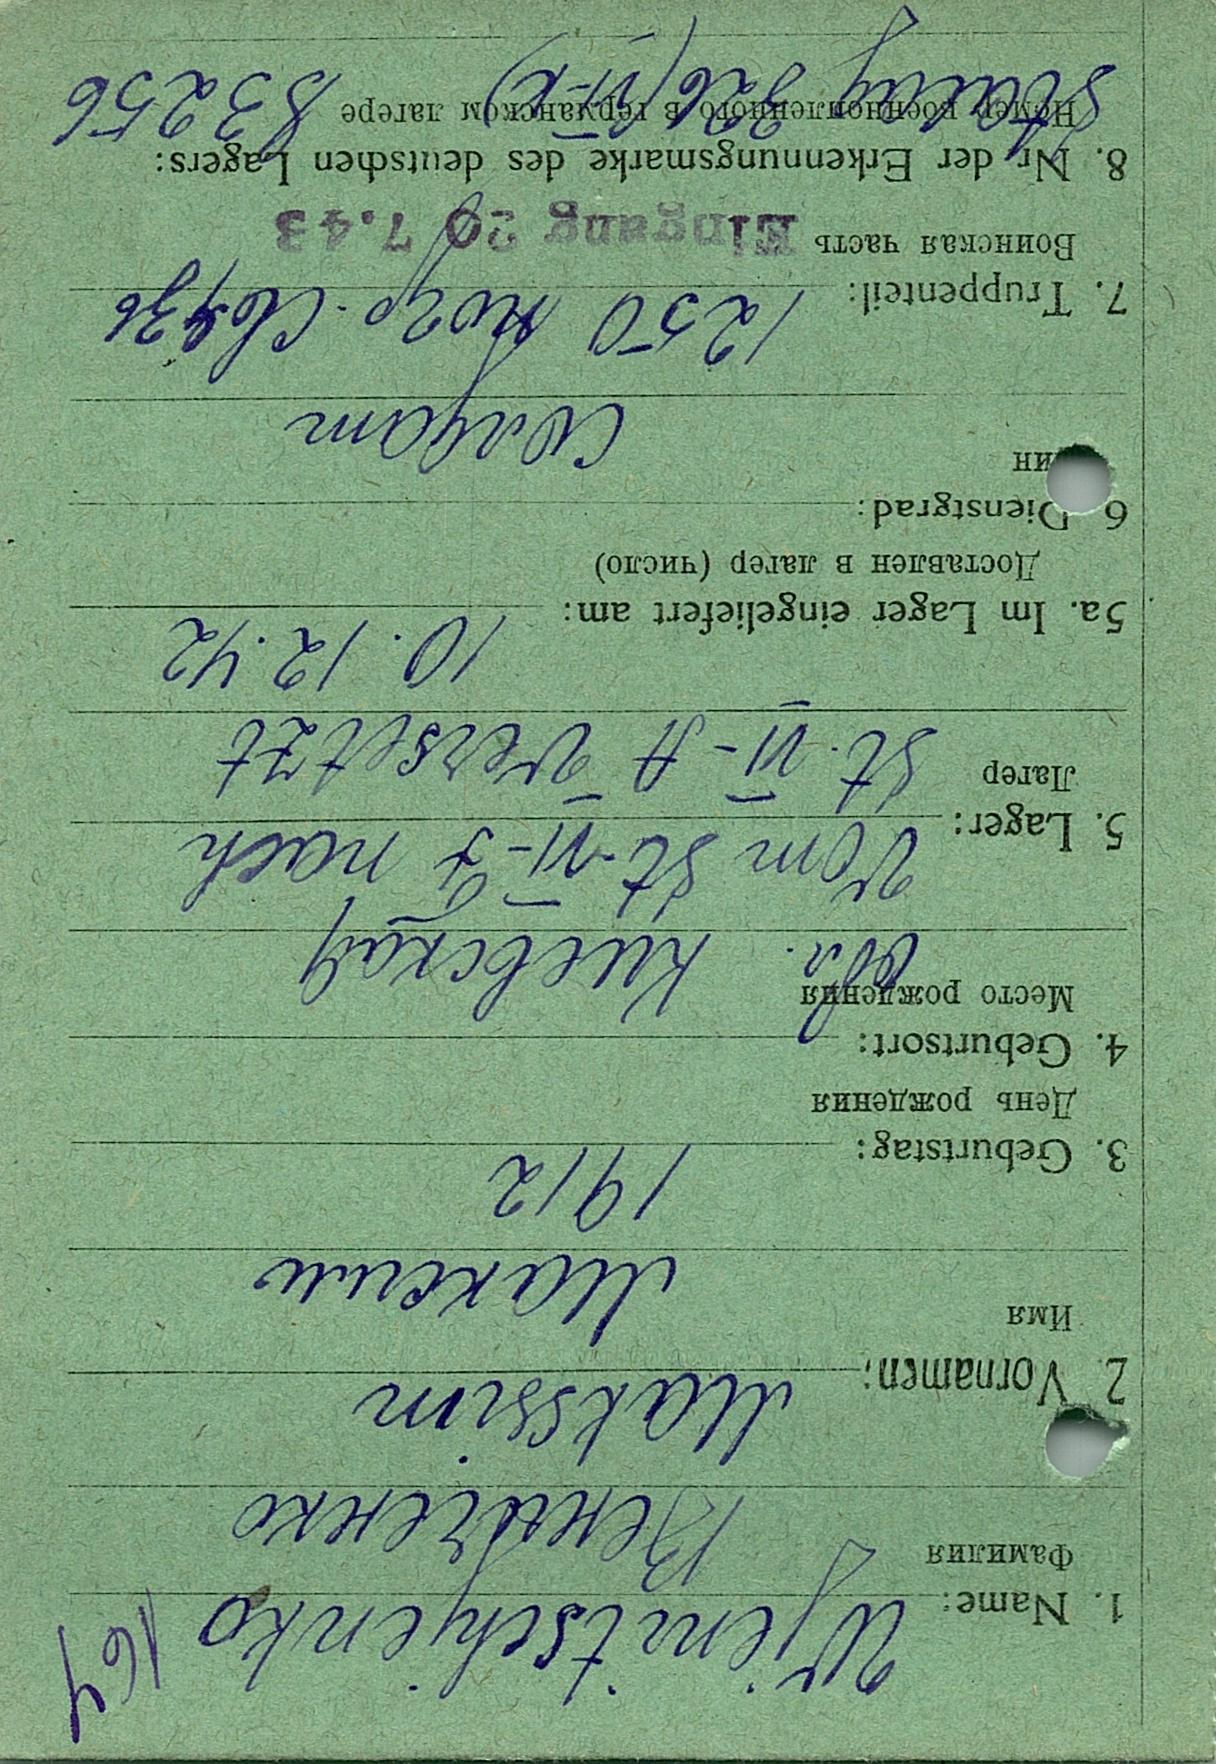 167
1. Name: Wjenitschjenko
Фамилия Венатченко
2. Vornamen: Makssim
Имя Максим
3. Geburtstag: 1912
День рождения
4. Geburtsort:
Место рождения обл. Киевская
5. Lager: Vom St. VI-J nach
Лагер St. VI-A versetzt
5a. Im Lager eingeliefert am: 10.12.42
Доставлен в лагер (число)
6 Dienstgrad:
ин Солдат
7. Truppenteil: 1250
Воинская часть Eingang 20 7.43
8. Nr. der Erkennungsmarke des deutschen Lagers:
Номер военнопленного в германском лагере
Stalag 326 (VI-K) 83256